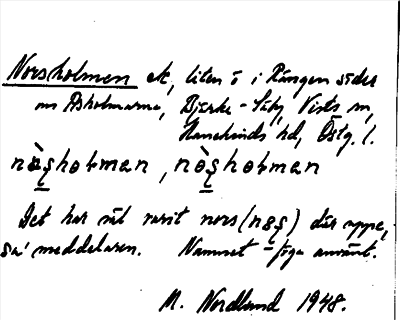 Norsholmen ek, liten ö i Rången söder
om Askholmarna, Bjärka-Säby, Vists sn,
Hanekinds hd, Östg. l.
nòʂhoɫmən, nòʂhoɫmən
Det har nåt varit nors (noʂ) där uppe,
sa' meddelaren. Namnet föga använt.
M. Nordlund 1948.